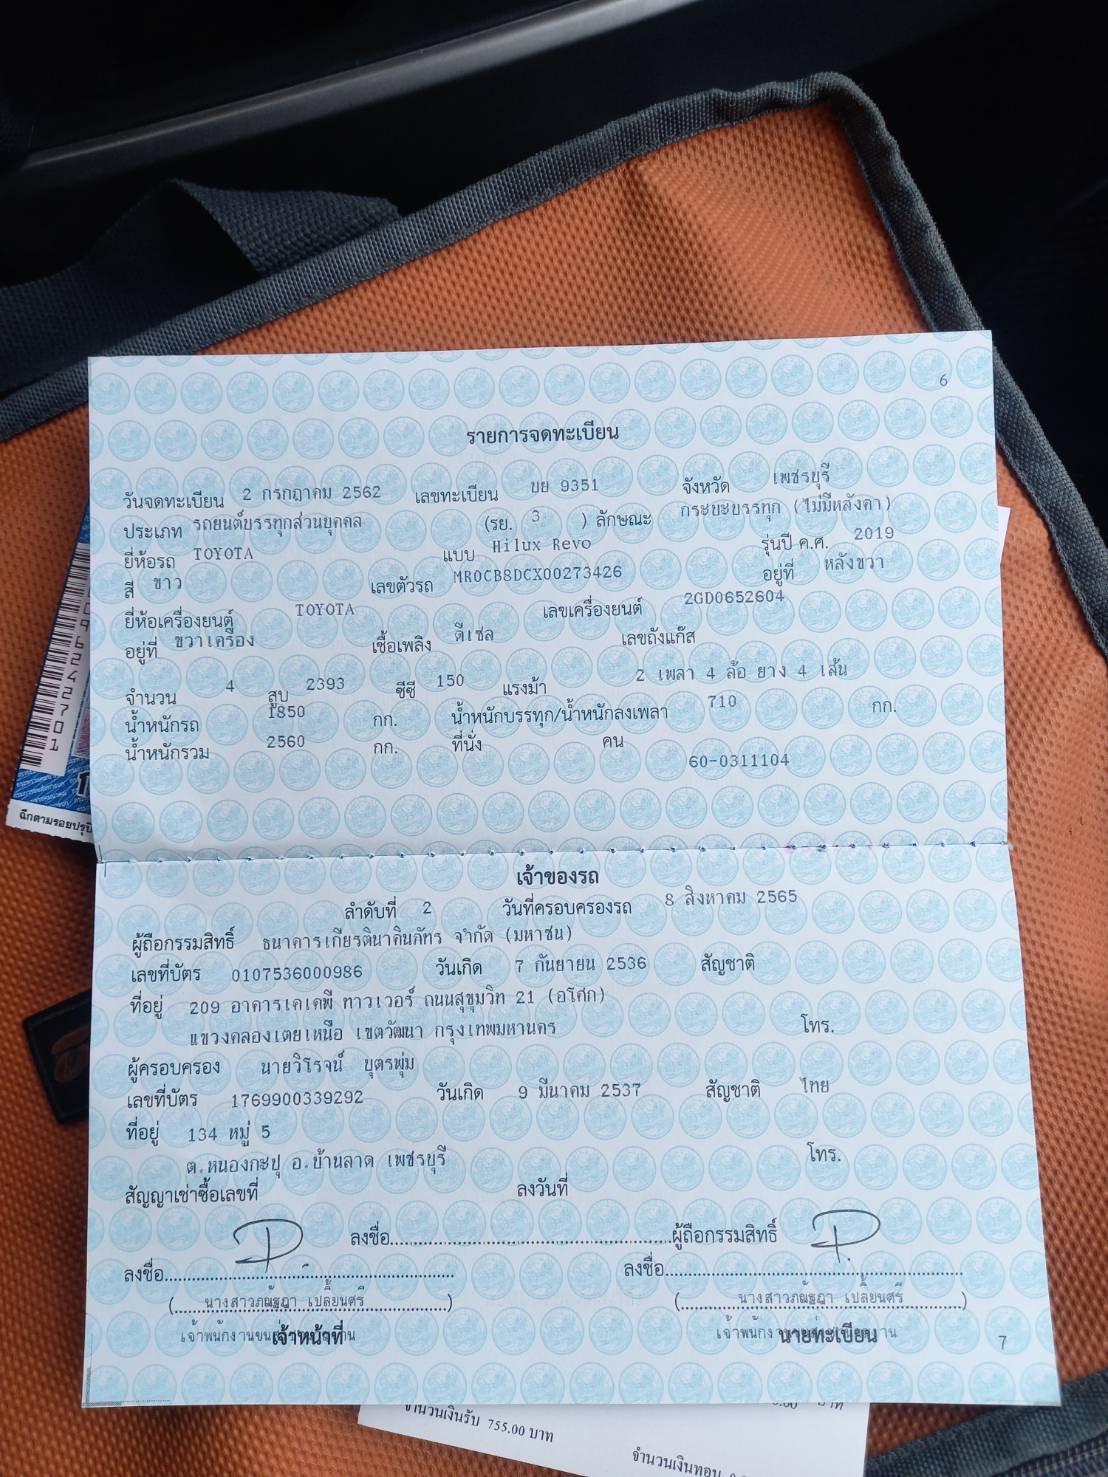 6
รายการจดทะเบียน
วันจดทะเบียน 2 กรกฎาคม 2562 เลขทะเบียน บย 9351 จังหวัด เพชรบุรี
ประเภท รถยนต์บรรทุกส่วนบุคคล (รย. 3 ) ลักษณะ กระบะบรรทุก (ไม่มีหลังคา)
ยี่ห้อรถ TOYOTA แบบ Hilux Revo รุ่นปี ค.ศ. 2019
สี ขาว เลขตัวรถ MR0CB8DCX00273426 อยู่ที่ หลังขวา
ยี่ห้อเครื่องยนต์ TOYOTA เลขเครื่องยนต์ 2GD0652604
อยู่ที่ ขวาเครื่อง เชื้อเพลิง ดีเซล เลขถังแก๊ส
จำนวน 4 สูบ 2393 ซีซี 150 แรงม้า 2 เพลา 4 ล้อ ยาง 4 เส้น
น้ำหนักรถ 1850 กก. น้ำหนักบรรทุก/น้ำหนักลงเพลา 710 กก.
น้ำหนักรวม 2560 กก. ที่นั่ง คน
60-0311104
เจ้าของรถ
ลำดับที่ 2 วันที่ครอบครองรถ 8 สิงหาคม 2565
ผู้ถือกรรมสิทธิ์ ธนาคารเกียรตินาคินภัทร จำกัด (มหาชน)
เลขที่บัตร 0107536000986 วันเกิด 7 กันยายน 2536 สัญชาติ
ที่อยู่ 209 อาคารเคเคพี ทาวเวอร์ ถนนสุขุมวิท 21 (อโศก)
แขวงคลองเตยเหนือ เขตวัฒนา กรุงเทพมหานคร โทร.
ผู้ครอบครอง นายวิโรจน์ บุตรพุ่ม
เลขที่บัตร 1769900339292 วันเกิด 9 มีนาคม 2537 สัญชาติ ไทย
ที่อยู่ 134 หมู่ 5
ต.หนองกะปุ อ.บ้านลาด เพชรบุรี โทร.
สัญญาเช่าซื้อเลขที่ ลงวันที่
ลงชื่อ....................ผู้ถือกรรมสิทธิ์
ลงชื่อ.................... ลงชื่อ....................
(นางสาวภณัฐฎา เปลี้ยนศรี) (นางสาวภณัฐฎา เปลี้ยนศรี)
เจ้าหน้าที่ นายทะเบียน
7
ฉีกตามรอยปรุ
จำนวนเงินรับ 755.00 บาท
จำนวนเงินทอน